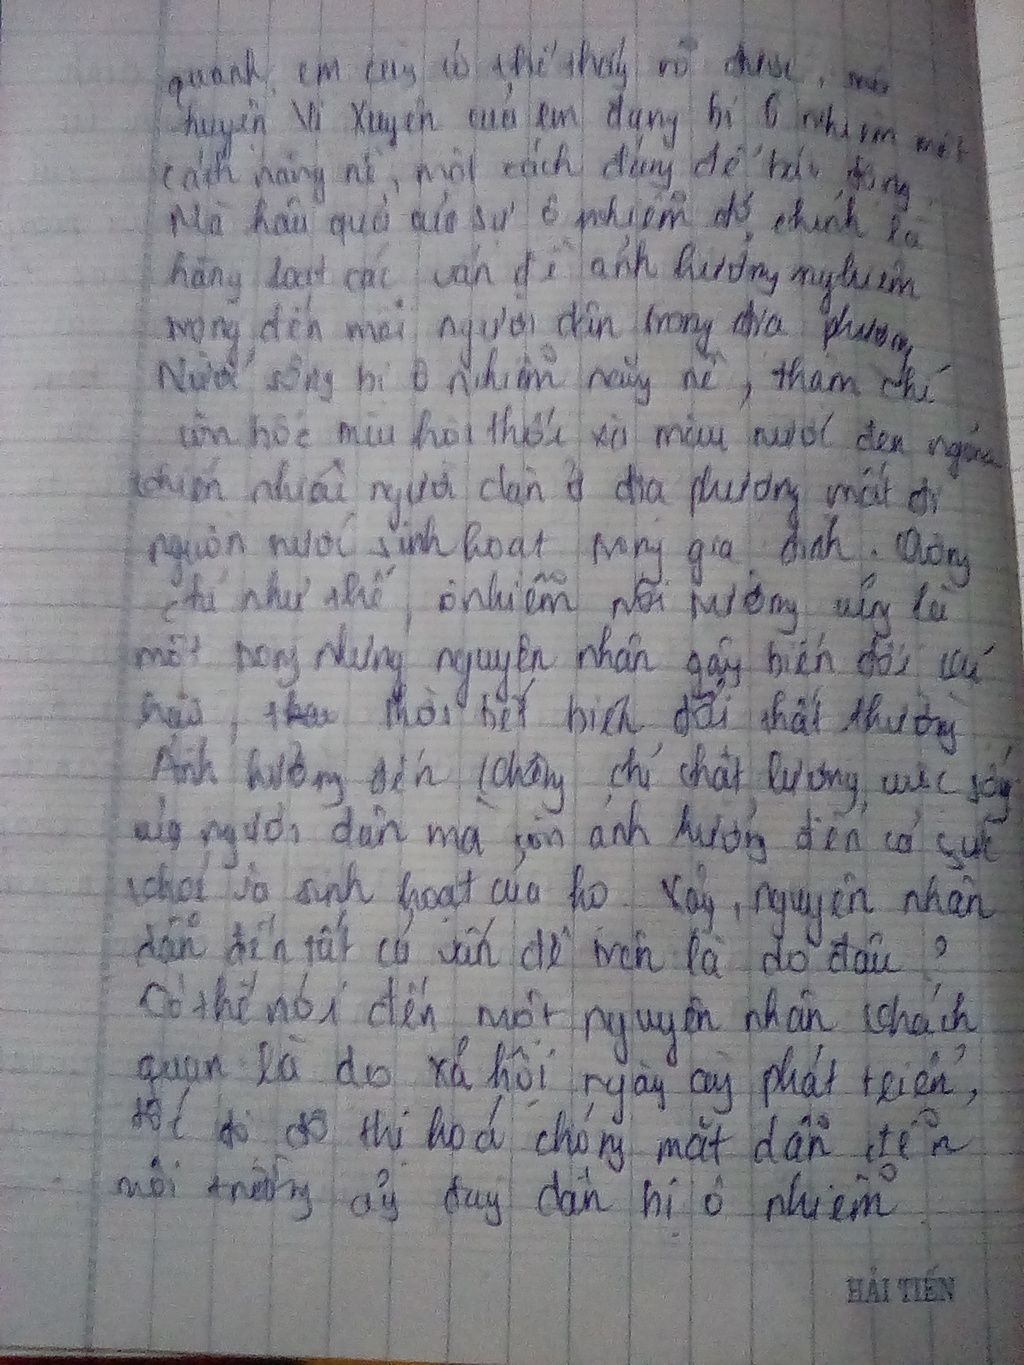 quanh, em cũng có thể thấy rõ được,
huyện Vị Xuyên của em đang bị ô nhiễm một
cách nặng nề, một cách đáng để báo động
Mà hậu quả của sự ô nhiễm đó, chính là
hàng loạt các vấn đề ảnh hưởng nghiêm
trọng đến mọi người dân trong địa phương
Nước sông bị ô nhiễm nặng nề, thậm chí
còn bốc mùi hôi thối và màu nước đen
khiến nhiều người dân ở địa phương mất đi
nguồn nước sinh hoạt trong gia đình. Không
chỉ như thế, ô nhiễm môi trường cũng là
một trong những nguyên nhân gây biến đổi khí
hậu, thời tiết biến đổi thất thường
Ảnh hưởng đến không chỉ chất lượng cuộc sống
của người dân mà còn ảnh hưởng đến cả sức
khoẻ và sinh hoạt của họ. Vậy, nguyên nhân
dẫn đến tất cả vấn đề trên là do đâu?
Có thể nói đến một nguyên nhân khách
quan là do xã hội ngày càng phát triển,
tốc độ đô thị hoá chóng mặt dẫn đến
môi trường ấy dần bị ô nhiễm
HẢI TIẾN